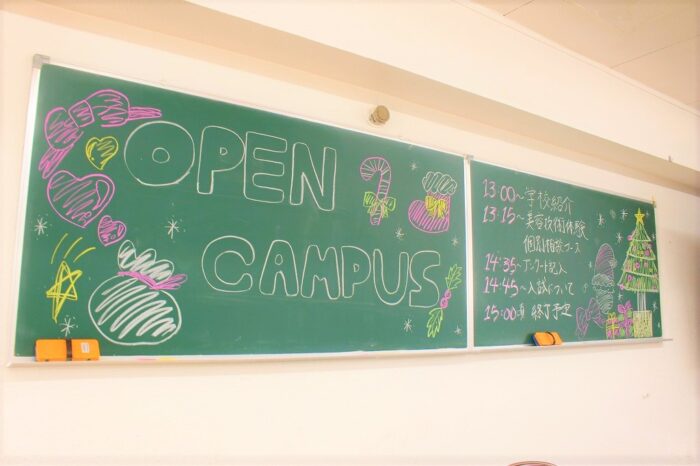 OPEN
CAMPUS
13:00~学校紹介
13:15~美容技術体験
個別相談コース
14:35~アンケート記入
14:45~入試について
15:00頃 終了予定